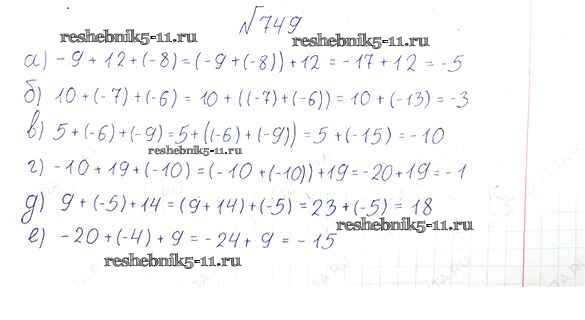 №749
reshebnik5-11.ru
reshebnik5-11.ru
а) -9+12+(-8)=(-9+(-8))+12=-17+12=-5
б) 10+(-7)+(-6)=10+((-7)+(-6))=10+(-13)=-3
в) 5+(-6)+(-9)=5+((-6)+(-9))=5+(-15)=-10
reshebnik5-11.ru
г) -10+19+(-10)=(-10+(-10))+19=-20+19=-1
д) 9+(-5)+14=(9+14)+(-5)=23+(-5)=18
reshebnik5-11.ru
е) -20+(-4)+9=-24+9=-15
reshebnik5-11.ru